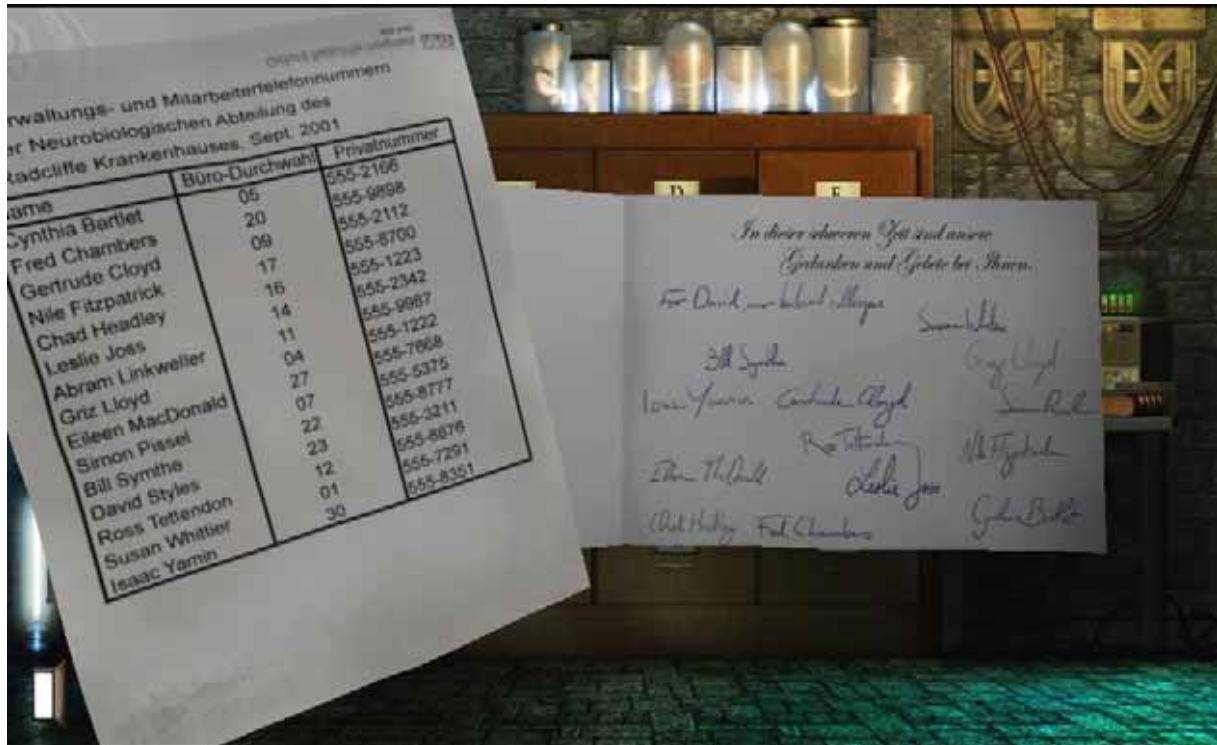 rwaltungs- und Mitarbeitertelefonnummern
er Neurobiologischen Abteilung des
Radcliffe Krankenhauses, Sept. 2001
ame Büro-Durchwahl Privatnummer
Cynthia Bartlet 05 555-2166
Fred Chambers 20 555-9898
Gertrude Cloyd 09 555-2112
Nile Fitzpatrick 17 555-8700
Chad Headley 16 555-1223
Leslie Joss 14 555-2342
Abram Linkweller 11 555-9987
Griz Lloyd 04 555-1222
Eileen MacDonald 27 555-7668
Simon Pissel 07 555-5375
Bill Symthe 22 555-8777
David Styles 23 555-3211
Ross Tettendon 12 555-8876
Susan Whittier 01 555-7291
Isaac Yamin 30 555-8351
D
In dieser schweren Zeit sind unsere
Gedanken und Gebete bei Ihnen.
For David, our beloved colleague
Bill Symthe
Gertrude Cloyd
Leslie Joss
Chad Headley Fred Chambers